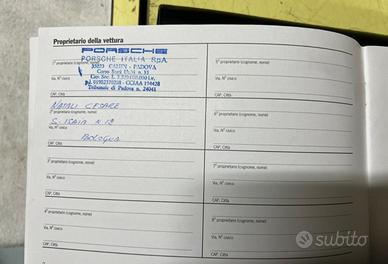 Proprietario della vettura
PORSCHE
PORSCHE ITALIA S.p.A.
1° proprietario (cognome, nome)
35023 PADOVA
Corso Stati Uniti n. 35
Via, N° civico
Cap. Soc. L.
CCIAA 174428
CAP, Città
Tribunale di Padova n. 24041
2° proprietario (cognome, nome)
NATALI CESARE
Via, N° civico
S. ISAIA N. 12
CAP, Città
BOLOGNA
3° proprietario (cognome, nome)
Via, N° civico
CAP, Città
4° proprietario (cognome, nome)
Via, N° civico
CAP, Città
proprietario (cognome, nome)
Via, N° civico
CAP, Città
proprietario (cognome, nome)
Via, N° civico
CAP, Città
proprietario (cognome, nome)
Via, N° civico
CAP, Città
proprietario (cognome, nome)
Via, N° civico
subito